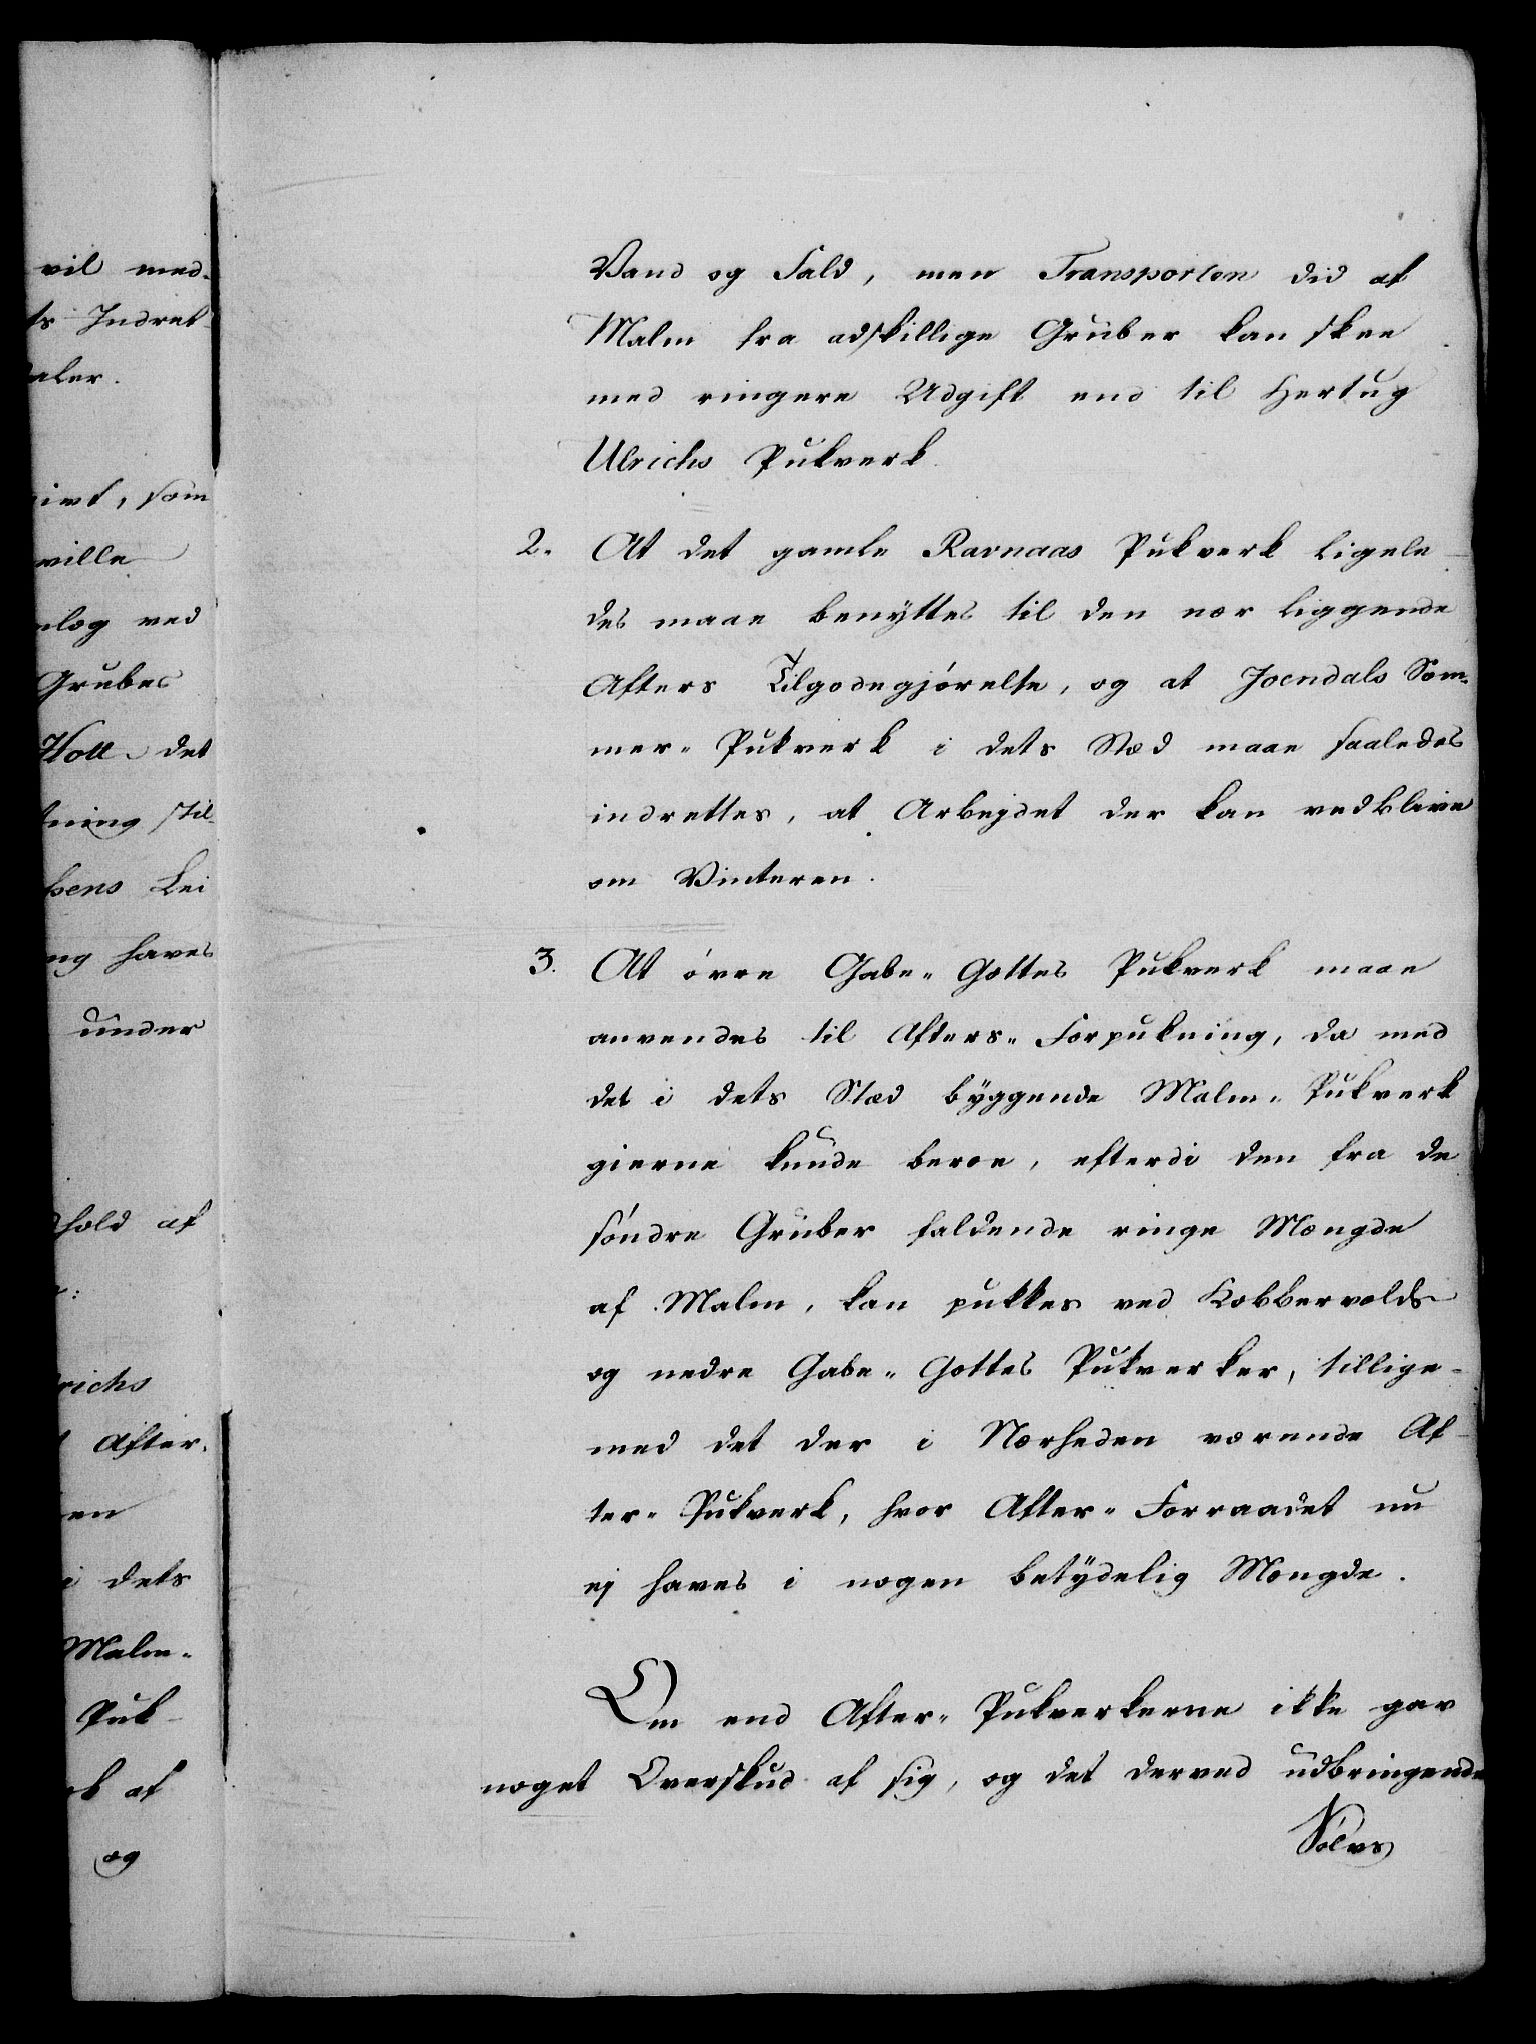 vil med-
ts Indret-
aler.
, som
ville
læg ved
Grubes
Holt det
tning til-
bens Lei
ng haves
under
hold af
richs
After-
en
i dets
Malm-
Puk-
af
og
Vand og Fald, men Transporten did af
Malm fra adskillige Gruber kan skee
med ringere Udgift end til Hertug
Ulrichs Pukverk.
2. At det gamle Ravnaas Pukverk ligele-
des maae benyttes til den nær liggende
Afters Tilgodegjørelse, og at Joendals Som-
mer-Pukverk i dets Stæd maae saaledes
indrettes, at Arbejdet der kan vedblive
om Vinteren.
3. At øvre Gabe-Gottes Pukverk maae
anvendes til Afters-Forpukning, da med
det i dets Stæd byggende Malm-Pukverk
gierne kunde beroe, efterdi den fra de
søndre Gruber faldende ringe Mængde
af Malm, kan pukkes ved Kobbervolds
og nedre Gabe-Gottes Pukverker, tillige-
med det der i Nærheden værende Af-
ter-Pukverk, hvor After-Forraadet nu
ej haves i nogen betydelig Mængde.
Om end After-Pukverkerne ikke gav
noget Overskud af sig, og det derved udbringende
Sølvs